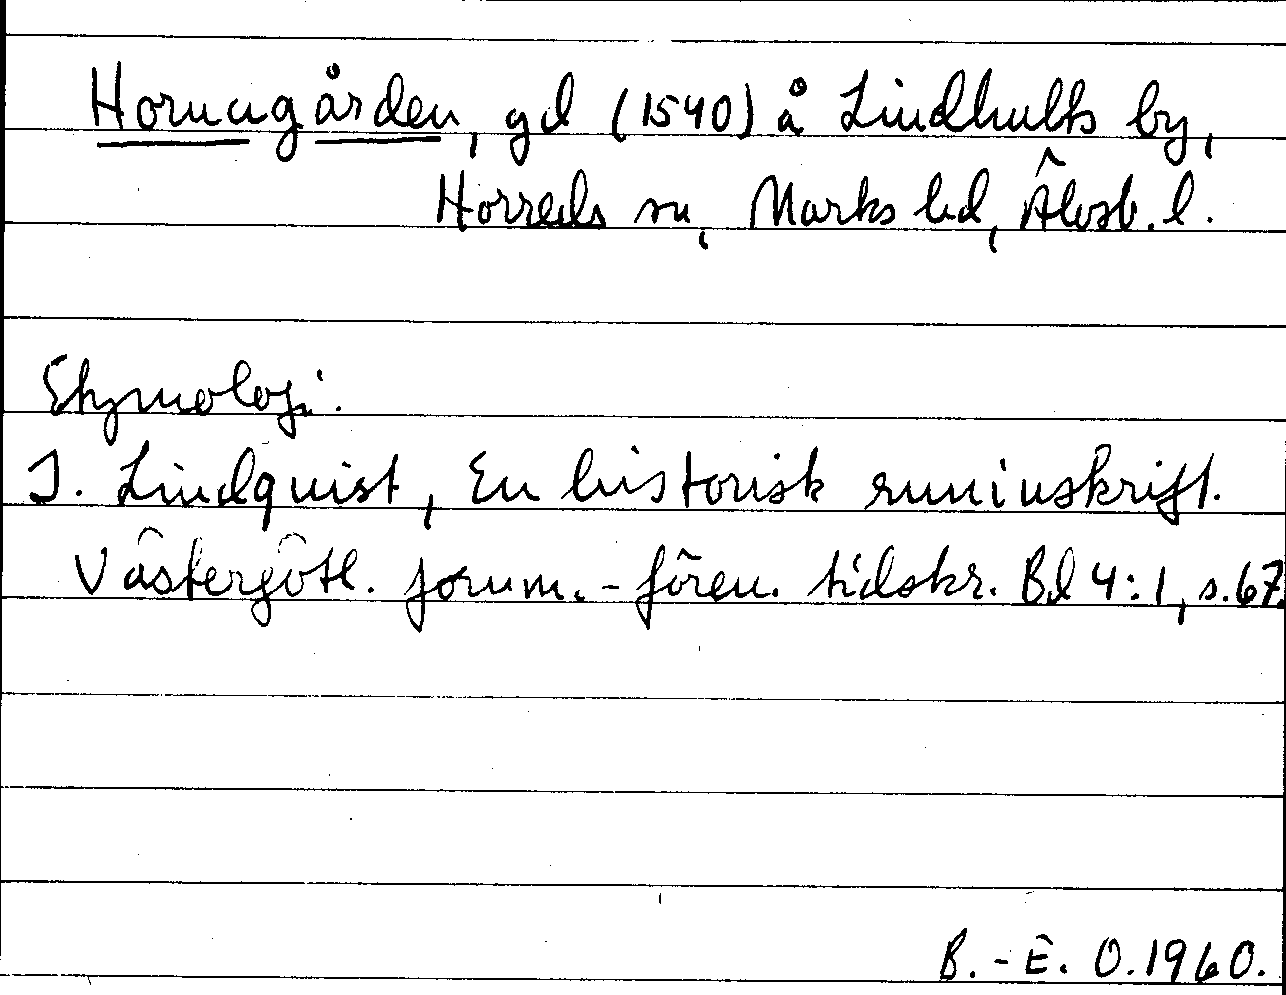 Hornagården, gd (1540) å Lindhults by,
Horreds sn, Marks hd, Älvsb. l.
Etymologi.
I. Lindquist, En historisk runinskrift.
Västergötl. fornm.-fören. tidskr. Bd 4:1, s.67.
B.-E. O.1960.